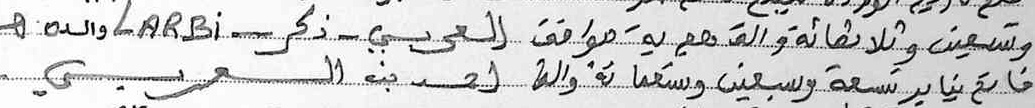 وتسعين وثلاثمائة والف هجرية موافق العربي - ذكر - LARBI والده
فاتح يناير تسعة وسبعين وتسعمائة والف احمد بن العربي